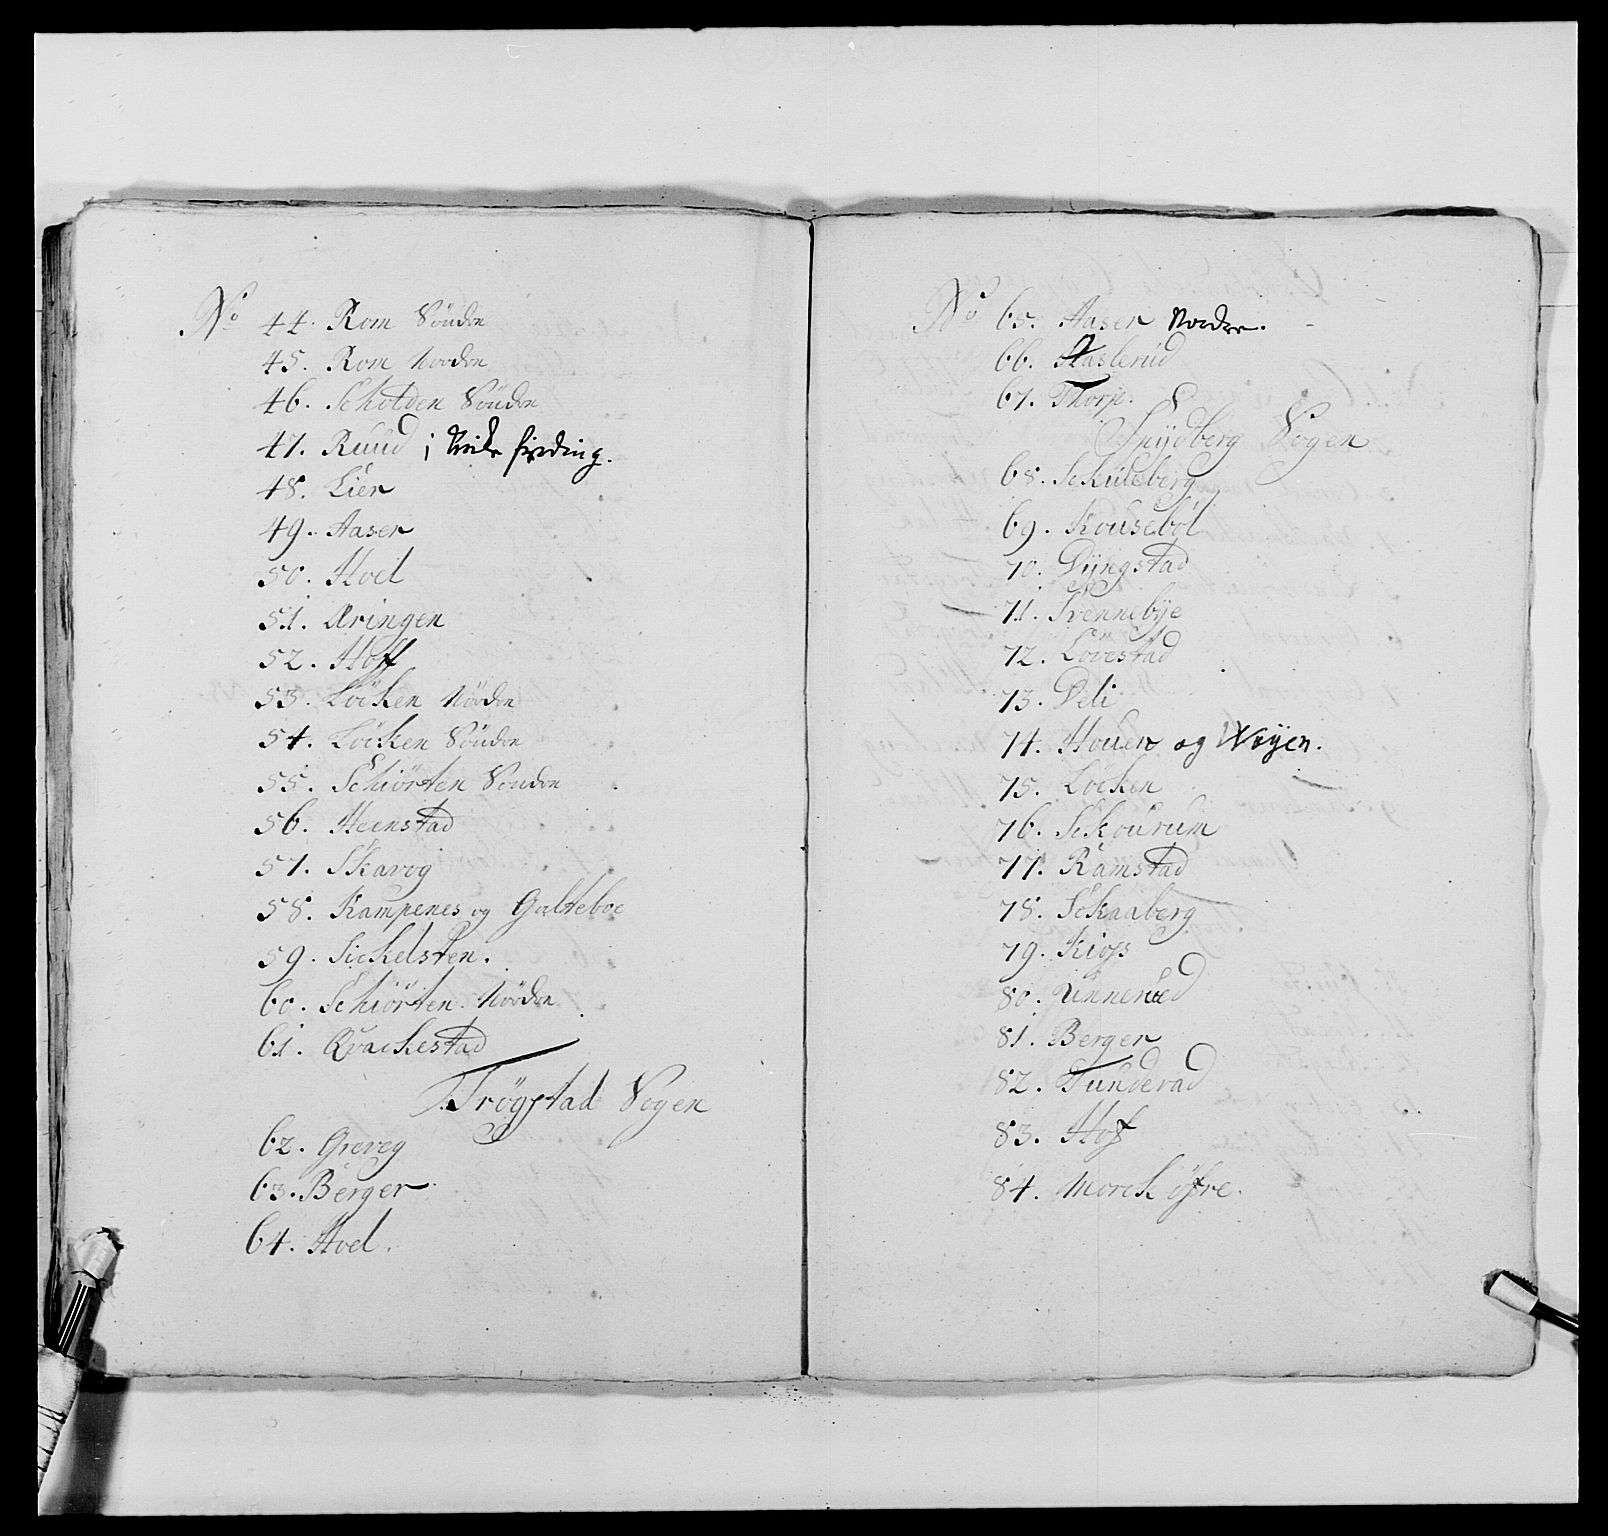 No 44. Rom Söndre
45. Rom Nordre
46. Schotden Söndre
47. Ruud i firding.
48. Lier
49. Aaser
50. Hoel
51. Æringen
52. Hoff
53. Löcken Nördre
54. Löcken Söndre
55. Schiörten Söndre
56. Heenstad
57. Skavog
58. Kampenes og Galteboe
59. Sickelsten.
60. Schiörten Nördre
61. Qvackestad
Trögstad Sogen
62. Greveg
63. Berger
64. Hoel.
No 65. Aaser Nordre.
66. Haslerud
67. Thorp.
Spydberg Sogen
68. Sckuleberg
69. Kousebøl
70. Dyngstad
71. Svennebye
72. Lövestad
73. Deli
74. Houer og Wøyen.
75. Löcken
76. Sckourum
77. Ramstad
78. Sckaaberg
79. Kioss
80. Unnerud
81. Berger
82. Tunderad
83. Hof
84. Morck öfre.